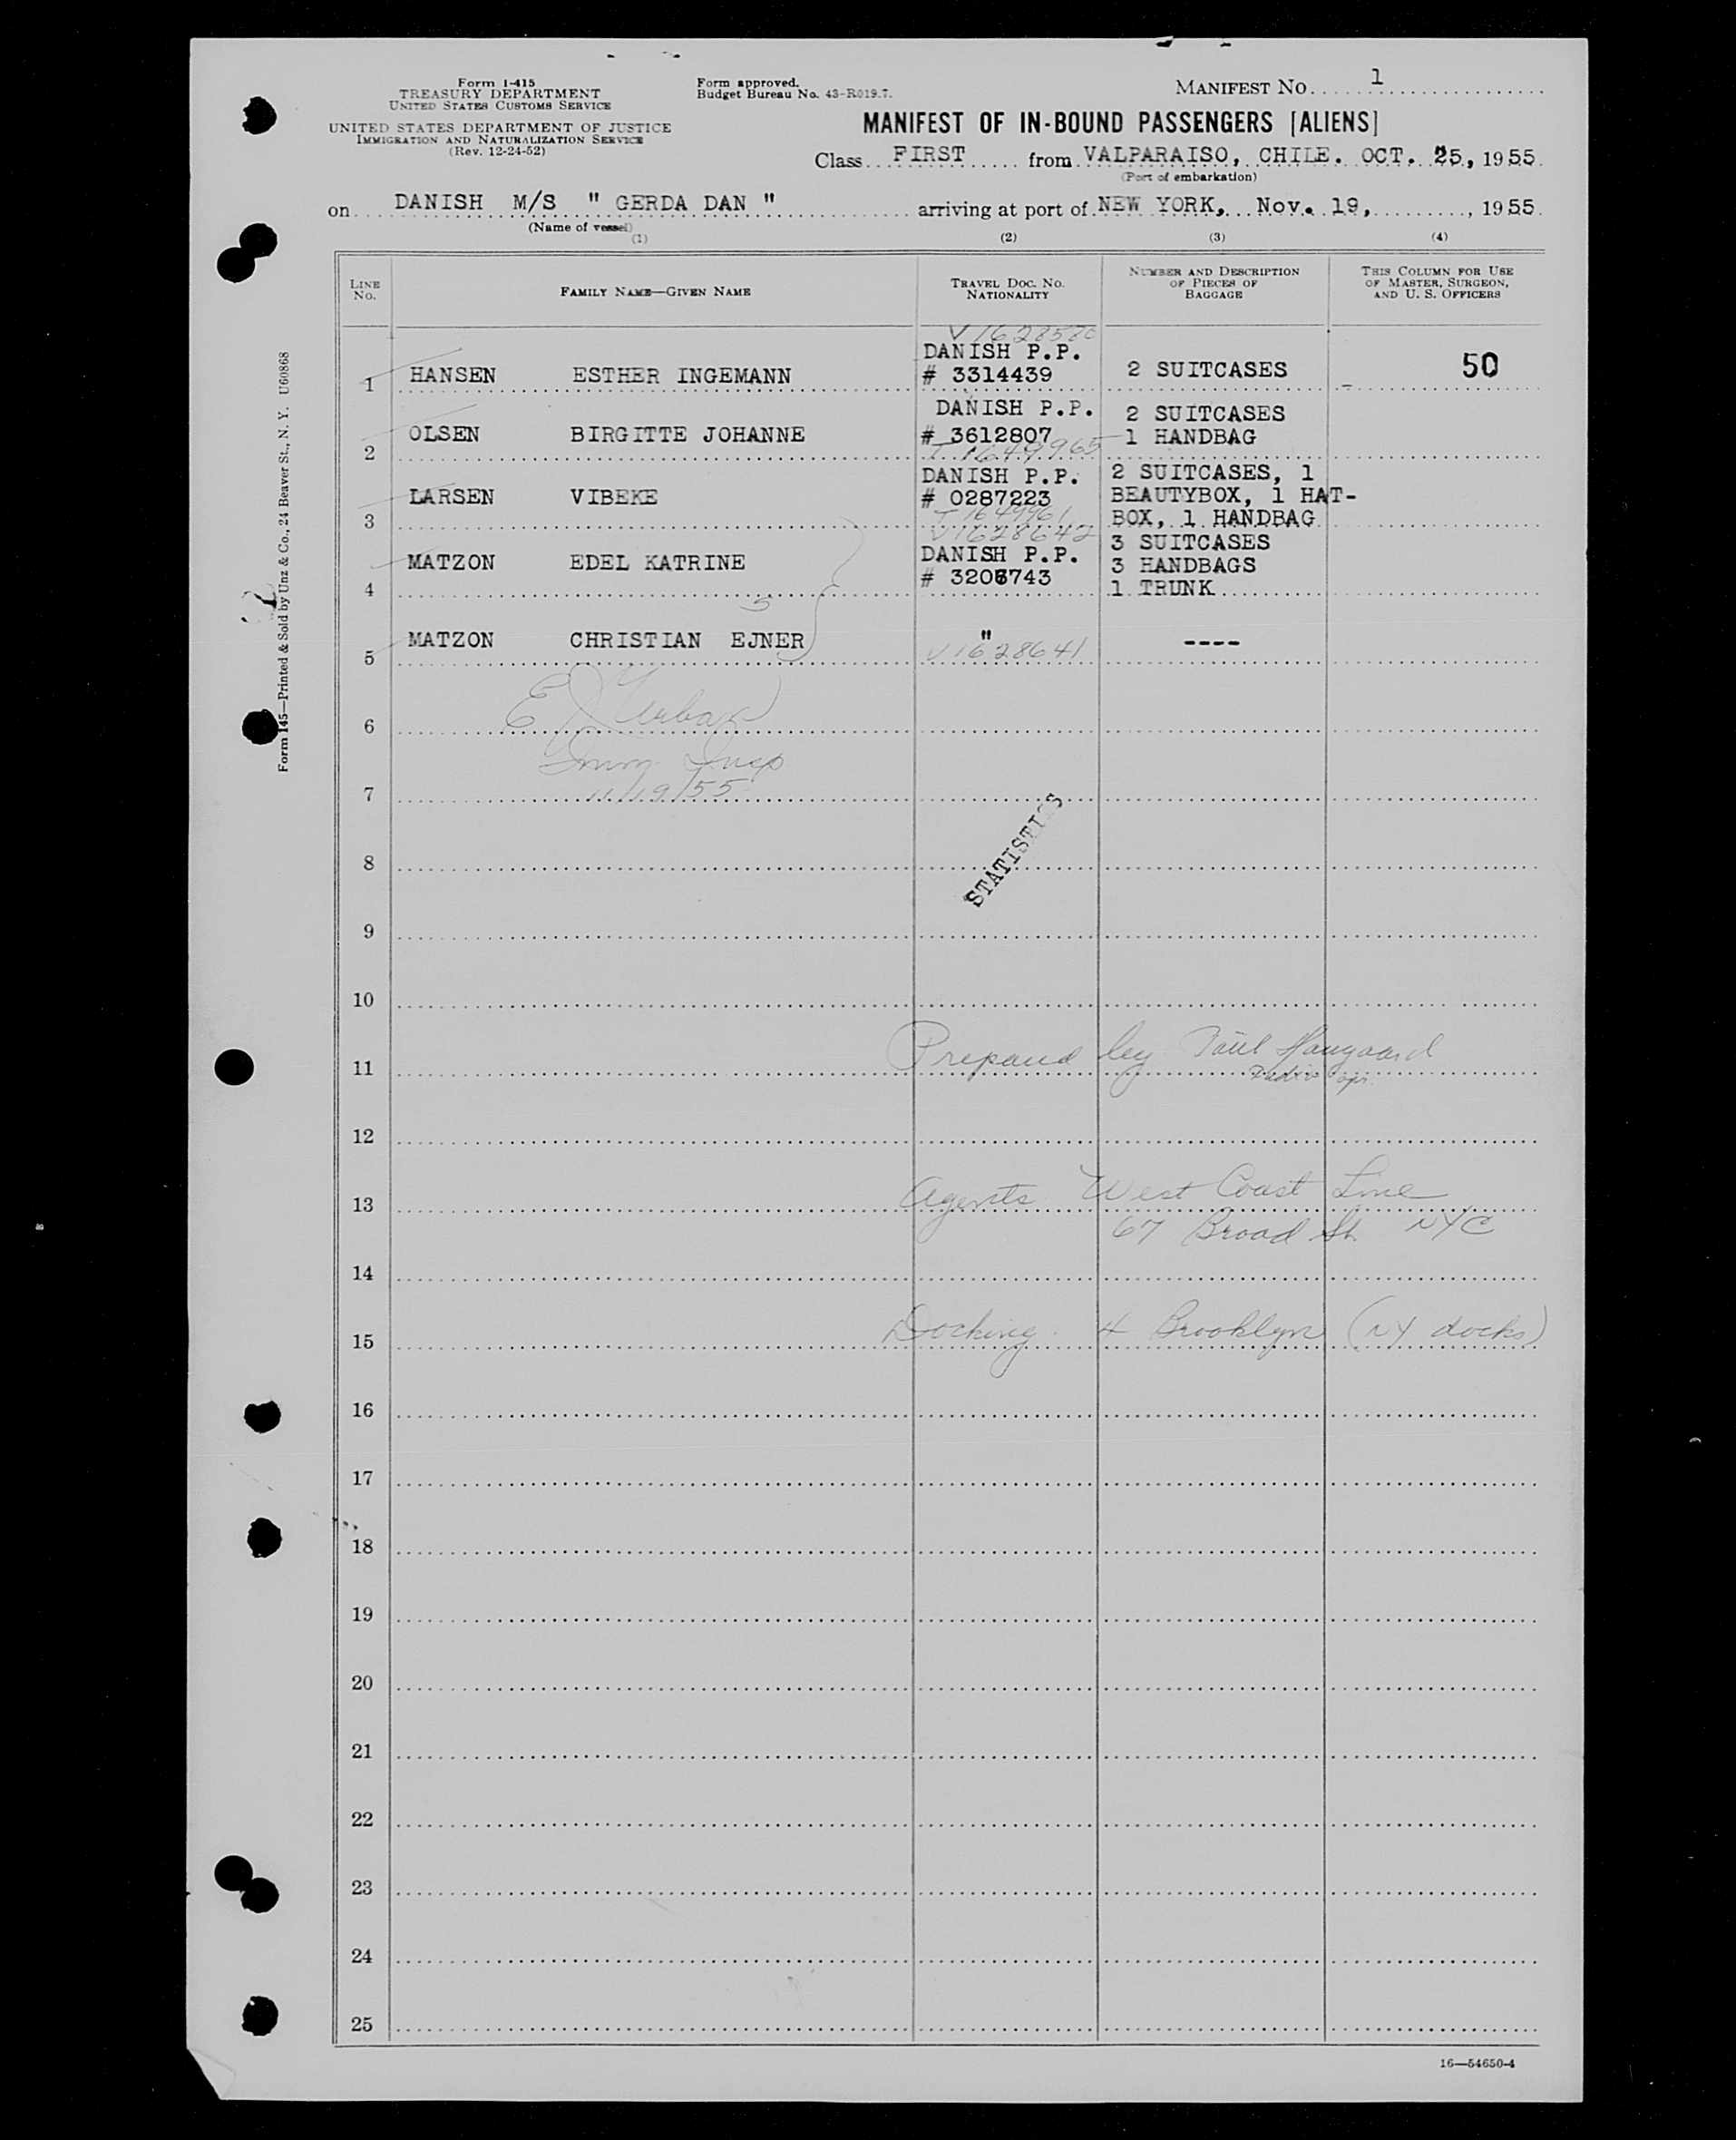 Form I-415
TREASURY DEPARTMENT
UNITED STATES CUSTOMS SERVICE
UNITED STATES DEPARTMENT OF JUSTICE
IMMIGRATION AND NATURALIZATION SERVICE
(Rev. 12-24-52)
Form approved.
Budget Bureau No. 43-R019.7.
MANIFEST NO. 1
MANIFEST OF IN-BOUND PASSENGERS [ALIENS]
Class FIRST from VALPARAISO, CHILE. OCT. 25, 1955
(Port of embarkation)
on DANISH M/S " GERDA DAN " arriving at port of NEW YORK, Nov. 19, , 1955
(Name of vessel)
(1) (2) (3) (4)
LINE NO.
FAMILY NAME—GIVEN NAME
TRAVEL DOC. NO. NATIONALITY
NUMBER AND DESCRIPTION OF PIECES OF BAGGAGE
THIS COLUMN FOR USE OF MASTER, SURGEON, AND U. S. OFFICERS
V1628580
1 HANSEN ESTHER INGEMANN DANISH P.P. # 3314439 2 SUITCASES 50
2 OLSEN BIRGITTE JOHANNE DANISH P.P. # 3612807 2 SUITCASES 1 HANDBAG
T 1649965
3 LARSEN VIBEKE DANISH P.P. # 0287223 2 SUITCASES, 1 BEAUTYBOX, 1 HAT-BOX, 1 HANDBAG
T 1649961
V1628642
4 MATZON EDEL KATRINE DANISH P.P. # 3206743 3 SUITCASES 3 HANDBAGS 1 TRUNK
5 MATZON CHRISTIAN EJNER " ----
V1628641
6
Imm Insp
7
11/19/55
STATISTICS
8
9
10
11 Prepared by Paul Haugaard
Radio opr.
12
13 Agents West Coast Line
67 Broad St NYC
14
15 Docking 4 Brooklyn (NY docks)
16
17
18
19
20
21
22
23
24
25
16—54650-4
Form 145—Printed & Sold by Unz & Co., 24 Beaver St., N. Y. U60868